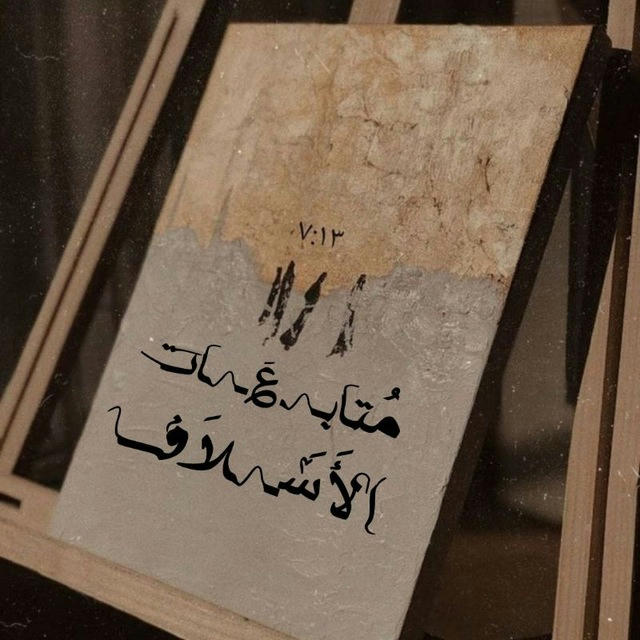 ٧:١٣
مُتابـعَـات
الأَسَـلاَف